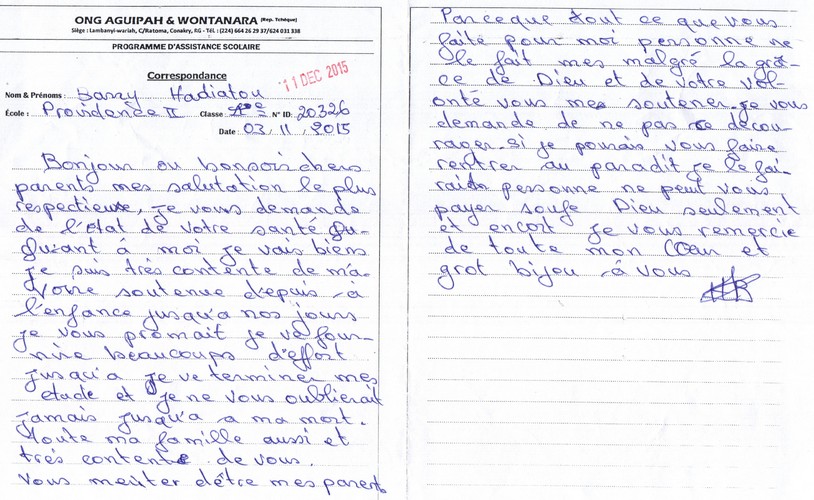 ONG AGUIPAH & WONTANARA (Rep. Tchèque)
Siège : Lambanyi-wariah, C/Ratoma, Conakry, RG - Tél. : (224) 664 26 29 37/624 031 338
PROGRAMME D'ASSISTANCE SCOLAIRE
Correspondance
11 DEC 2015
Nom & Prénoms : Barry Hadiatou
École : Providence II Classe N° ID: 20326
Date : 03, 11, 2015
Bonjour ou bonsoir chers
parents mes salutation le plus
respectieuse, je vous demande
de l'état de votre santé Qu-
Quant á moi je vais biens
je suis très contente de m'a-
voire soutenue depuis à
l'enfance jusqu'a nos jours
je vous promait je ve four-
nire beaucoups d'effort
jusqu'a je ve terminer mes
étude et je ne vous oublierait
jamais jusqu'a a ma mort.
Toute ma famille aussi et
très contente de vous.
Vous meriter d'être mes parents
Parceque tout ce que vous
faite pour moi personne ne
le fait mes malgré la grâ-
ce de Dieu et de votre vol-
onté vous mes soutener. je vous
demande de ne pas decou-
rager. Si je pouvais vous faire
rentrer au paradit je le fai-
rait personne ne peut vous
payer soufe Dieu seulement
et encort je vous remercie
de toute mon Coeur et
grot bijou à vous